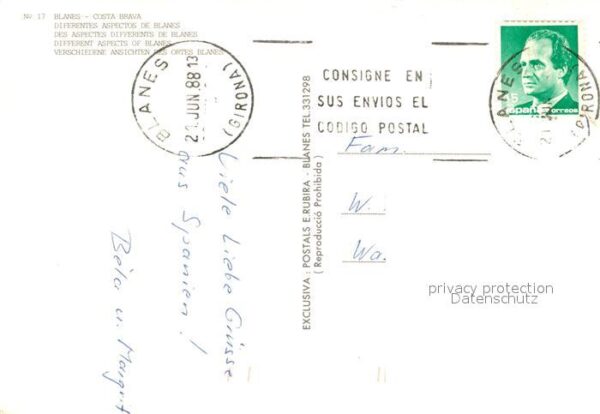 No 17 BLANES - COSTA BRAVA
DIFERENTES ASPECTOS DE BLANES
DES ASPECTES DIFFERENTS DE BLANES
DIFFERENT ASPECTS OF BLANES
VERSCHIEDENE ANSICHTEN DES ORTES BLANES
BLANES
21 JUN. 88 13
(GIRONA)
CONSIGNE EN
SUS ENVIOS EL
CODIGO POSTAL
España correos
BLANES
21
(GIRONA)
Liebe Grüsse
aus Spanien!
Béla u. Margrit
EXCLUSIVA: POSTALS E.RUBIRA - BLANES TEL.331298
(Reproducció Prohibida)
Fam.
W.
Wa.
privacy protection
Datenschutz